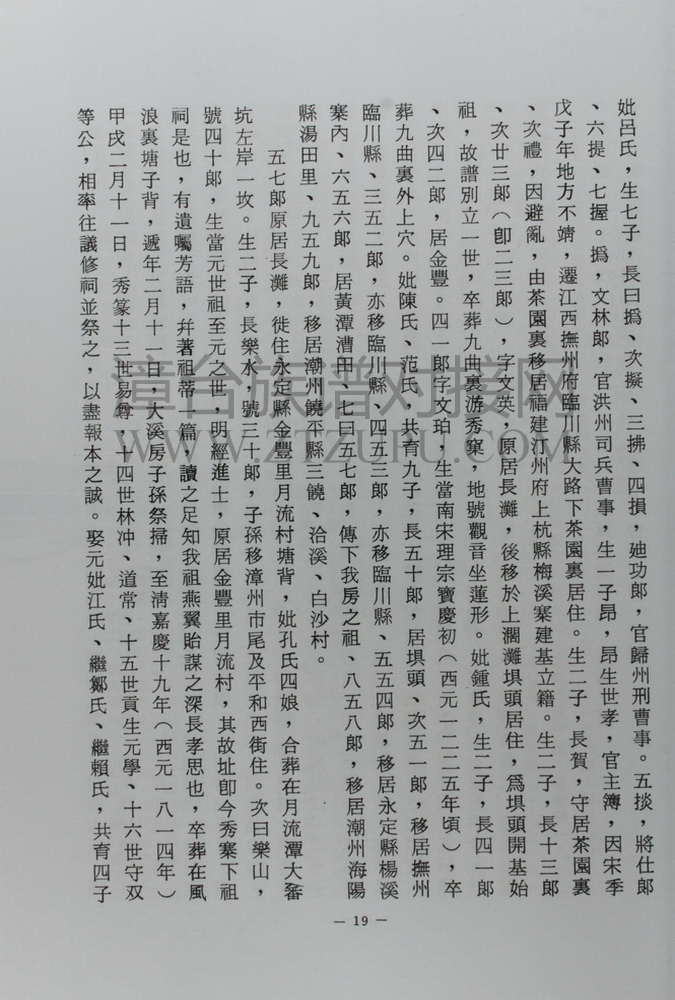 妣呂氏，生七子，長曰撝、次擬、三拂、四損，廸功郎，官歸州刑曹事。五掞，將仕郎
、六提、七握。撝，文林郎，官洪州司兵曹事，生一子昂，昂生世孝，官主簿，因宋季
戊子年地方不靖，遷江西撫州府臨川縣大路下茶園裏居住。生二子，長賀，守居茶園裏
、次禮，因避亂，由茶園裏移居福建汀州府上杭縣梅溪寨建基立籍。生二子，長十三郎
、次廿三郎（卽二三郎），字文英，原居長灘，後移於上澗灘垻頭居住，爲垻頭開基始
祖，故譜別立一世，卒葬九曲裏游秀窠，地號觀音坐蓮形。妣鍾氏，生二子，長四一郎
、次四二郎，居金豐。四一郎字文珀，生當南宋理宗寶慶初（西元一二二五年頃），卒
葬九曲裏外上穴。妣陳氏、范氏，共育九子，長五十郎，居垻頭、次五一郎，移居撫州
臨川縣、三五二郎，亦移臨川縣、四五三郎，亦移臨川縣、五五四郎，移居永定縣楊溪
寨內、六五六郎，居黃潭漕田、七曰五七郎，傳下我房之祖、八五八郎，移居潮州海陽
縣湯田里、九五九郎，移居潮州饒平縣三饒、洽溪、白沙村。
五七郎原居長灘，徙住永定縣金豐里月流村塘背，妣孔氏四娘，合葬在月流潭大畲
坑左岸一坟。生二子，長樂水，號三十郎，子孫移漳州市尾及平和西街住。次曰樂山，
號四十郎，生當元世祖至元之世，明經進士，原居金豐里月流村，其故址卽今秀寨下祖
祠是也，有遺囑芳語，幷著祖蒂一篇，讀之足知我祖燕翼貽謀之深長孝思也，卒葬在風
浪裏塘子背，遞年二月十一日，大溪房子孫祭掃，至淸嘉慶十九年（西元一八一四年）
甲戌二月十一日，秀篆十三世易尊，十四世林冲、道常、十五世貢生元學、十六世守双
等公，相率往議修祠並祭之，以盡報本之誠。娶元妣江氏、繼鄒氏、繼賴氏，共育四子
— 19 —
漳台族谱对接网
WWW.ZTZUPU.COM